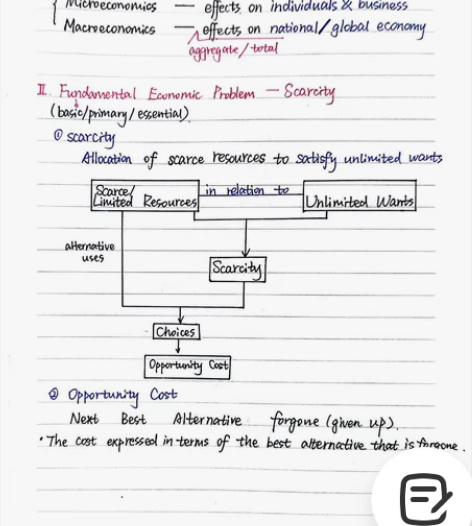 Microeconomics — effects on individuals & business
Macroeconomics — effects on national/global economy
aggregate/total
II. Fundamental Economic Problem — Scarcity
(basic/primary/essential)
① scarcity
Allocation of scarce resources to satisfy unlimited wants
Scarce/
Limited Resources
in relation to
Unlimited Wants
alternative
uses
Scarcity
Choices
Opportunity Cost
② Opportunity Cost
Next Best Alternative forgone (given up).
• The cost expressed in terms of the best alternative that is forgone.